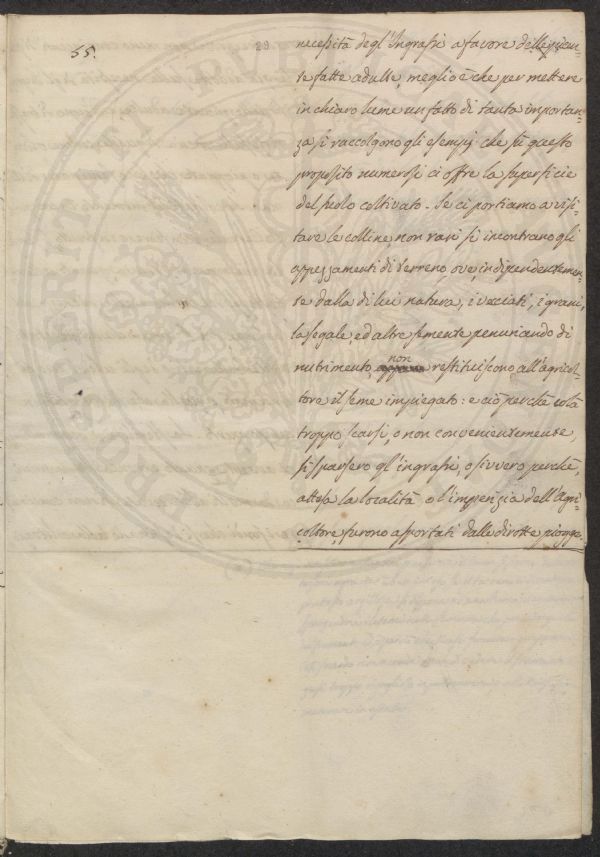 55.
29
necessità degl'Ingrassi a favore delle pian-
te fatte adulte, meglio è che per mettere
in chiaro lume un fatto di tanta importan-
za si raccolgono gli esempj che su questo
proposito numerosi ci offre la superficie
del suolo coltivato. Se ci portiamo a visi-
tare le colline, non rari si incontrano gli
appezzamenti di terreno, ove, indipendentemen-
te dalla di lui natura, i vecciati, i grani,
la segale, ed altre semente penuriando di
nutrimento, non restituiscono all'agricol-
tore il seme impiegato: e ciò perchè colà
troppo scarsi, o non convenientemente,
si sparsero gl'ingrassi, o sivvero perchè,
attesa la località o l'imperizia dell'agri-
coltore, furono asportati dalle dirotte piogge.